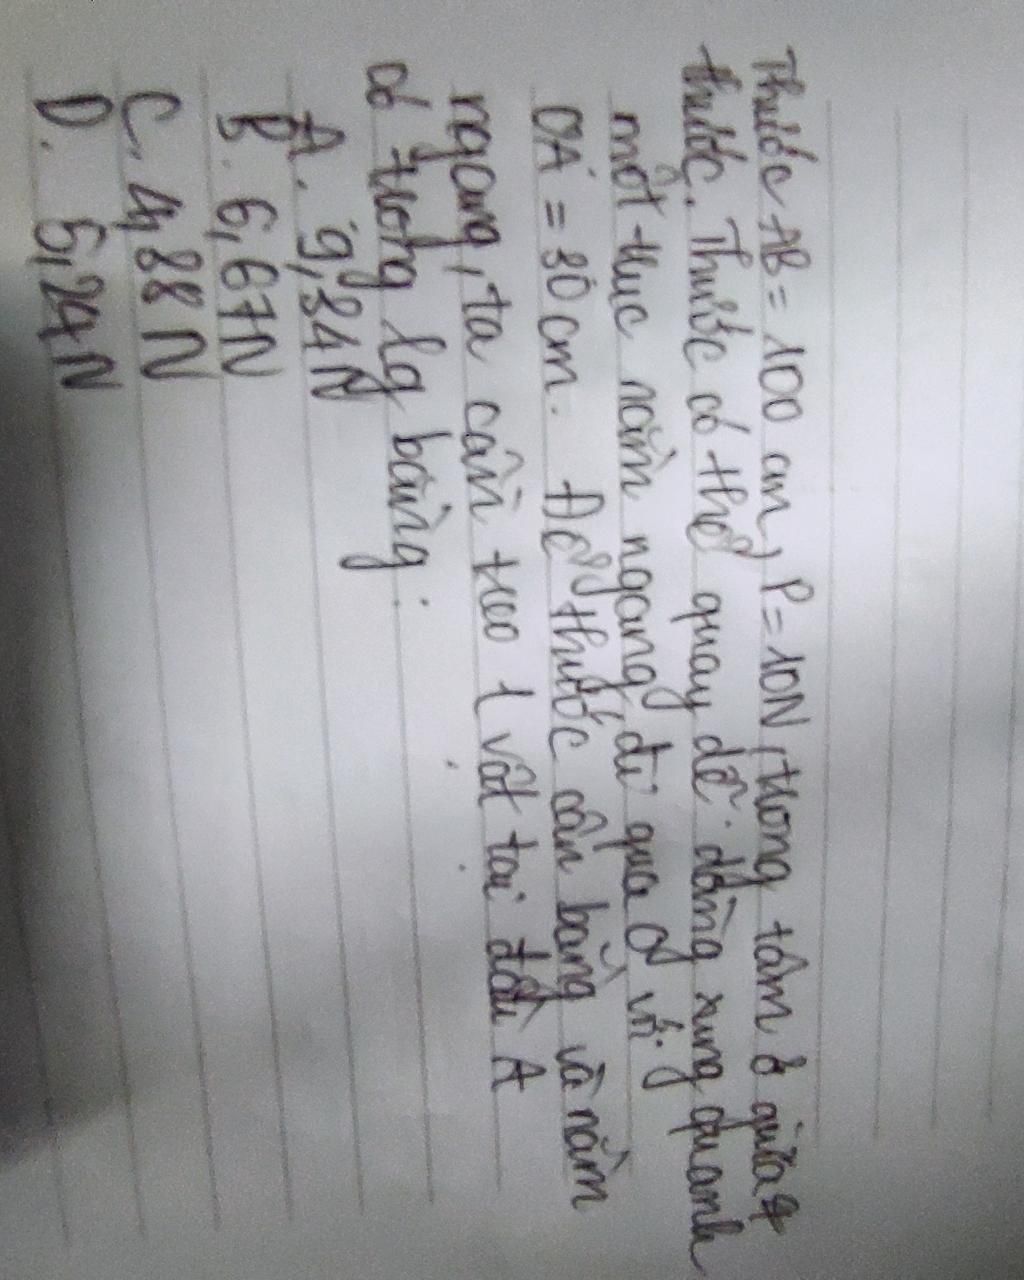 Thước AB = 100 cm, P = 10N, trọng tâm ở giữa
thước. Thước có thể quay dễ dàng xung quanh
một trục nằm ngang đi qua O với
OA = 30 cm. Để thước cân bằng và nằm
ngang, ta cần treo 1 vật tại đầu A
có trọng lg bằng:
A. 9,34N
B. 6,67N
C. 4,88N
D. 5,24N